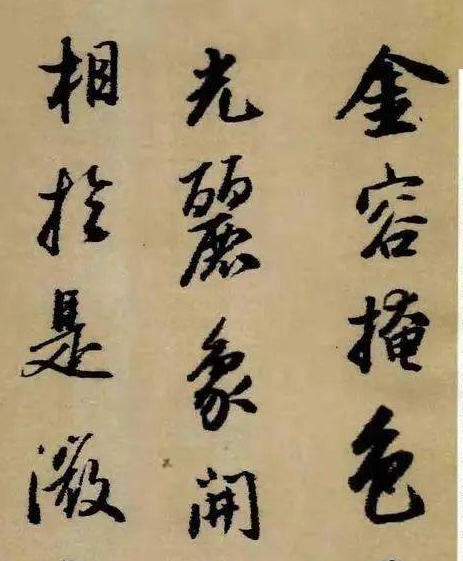 金容掩色
光麗象開
相於是微